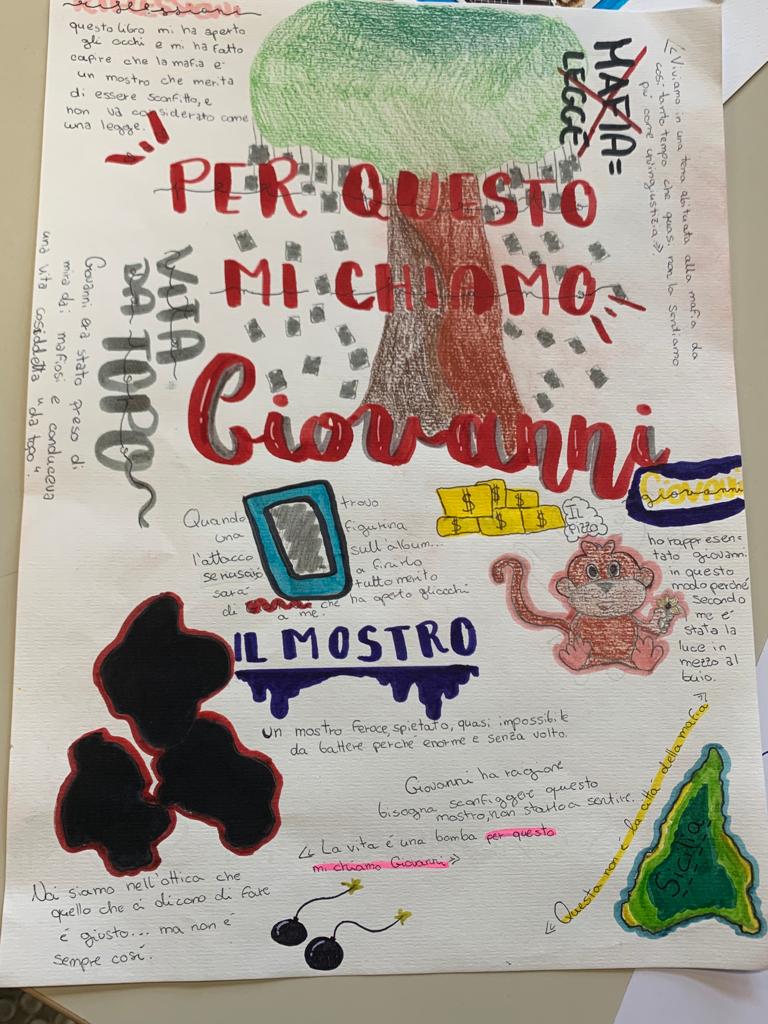 riflessioni
questo libro mi ha aperto
gli occhi e mi ha fatto
capire che la mafia è
un mostro che merita
di essere sconfitto, e
non va considerato come
una legge.
MAFIA=
LEGGE
<<Viviamo in una terra abituata alla mafia da
così tanto tempo che quasi non la sentiamo
più come un'ingiustizia>>.
PER QUESTO
MI CHIAMO
Giovanni
VITA
DA TOPO
Giovanni era stato preso di
mira dai mafiosi e conduceva
una vita cosiddetta "da topo".
Quando trovo
una figurina
l'attacco sull'album...
se riuscirò a finirlo
sarà tutto merito
di che ha aperto gli occhi
a me.
$ $ $
$ $ $
IL
pizzo
Giovanni
giovanni
ho rappresen-
tato giovanni
in questo
modo perché
secondo
me è
stata la
luce in
mezzo al
buio.
IL MOSTRO
un mostro feroce, spietato, quasi impossibile
da battere perché enorme e senza volto.
Giovanni ha ragione
bisogna sconfiggere questo
mostro, non starlo a sentire...
<< La vita é una bomba per questo
mi chiamo Giovanni>>
Noi siamo nell'ottica che
quello che ci dicono di fare
é giusto... ma non é
sempre così.
<< Questa non è la città della mafia >>
Sicilia